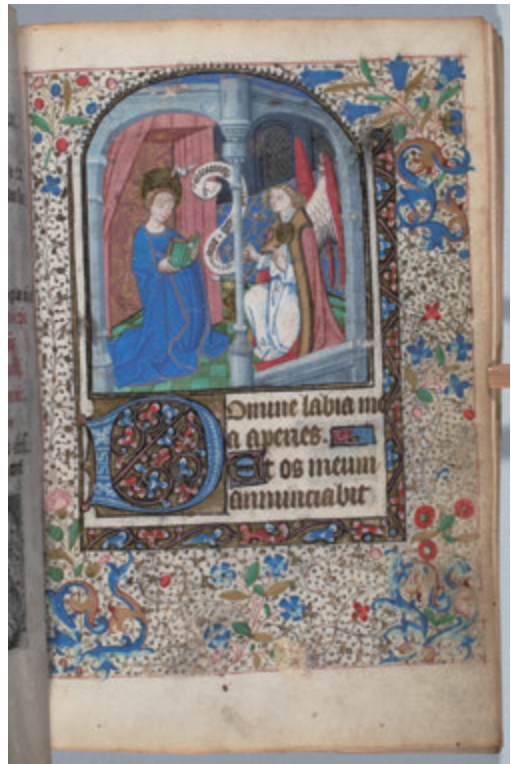 Domine labia me
a aperies.
Et os meum
annunciabit